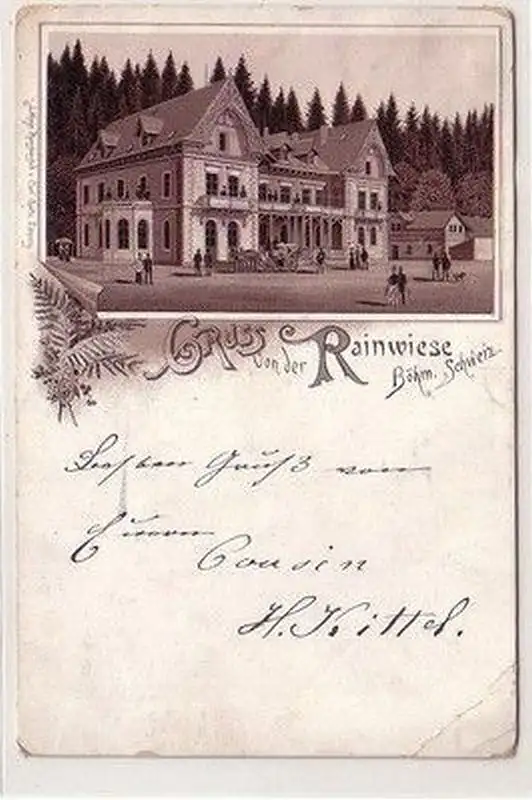 Gruss von der Rainwiese
Böhm. Schweiz
Besten Gruß von
Eurem
Cousin
H. Kittel.